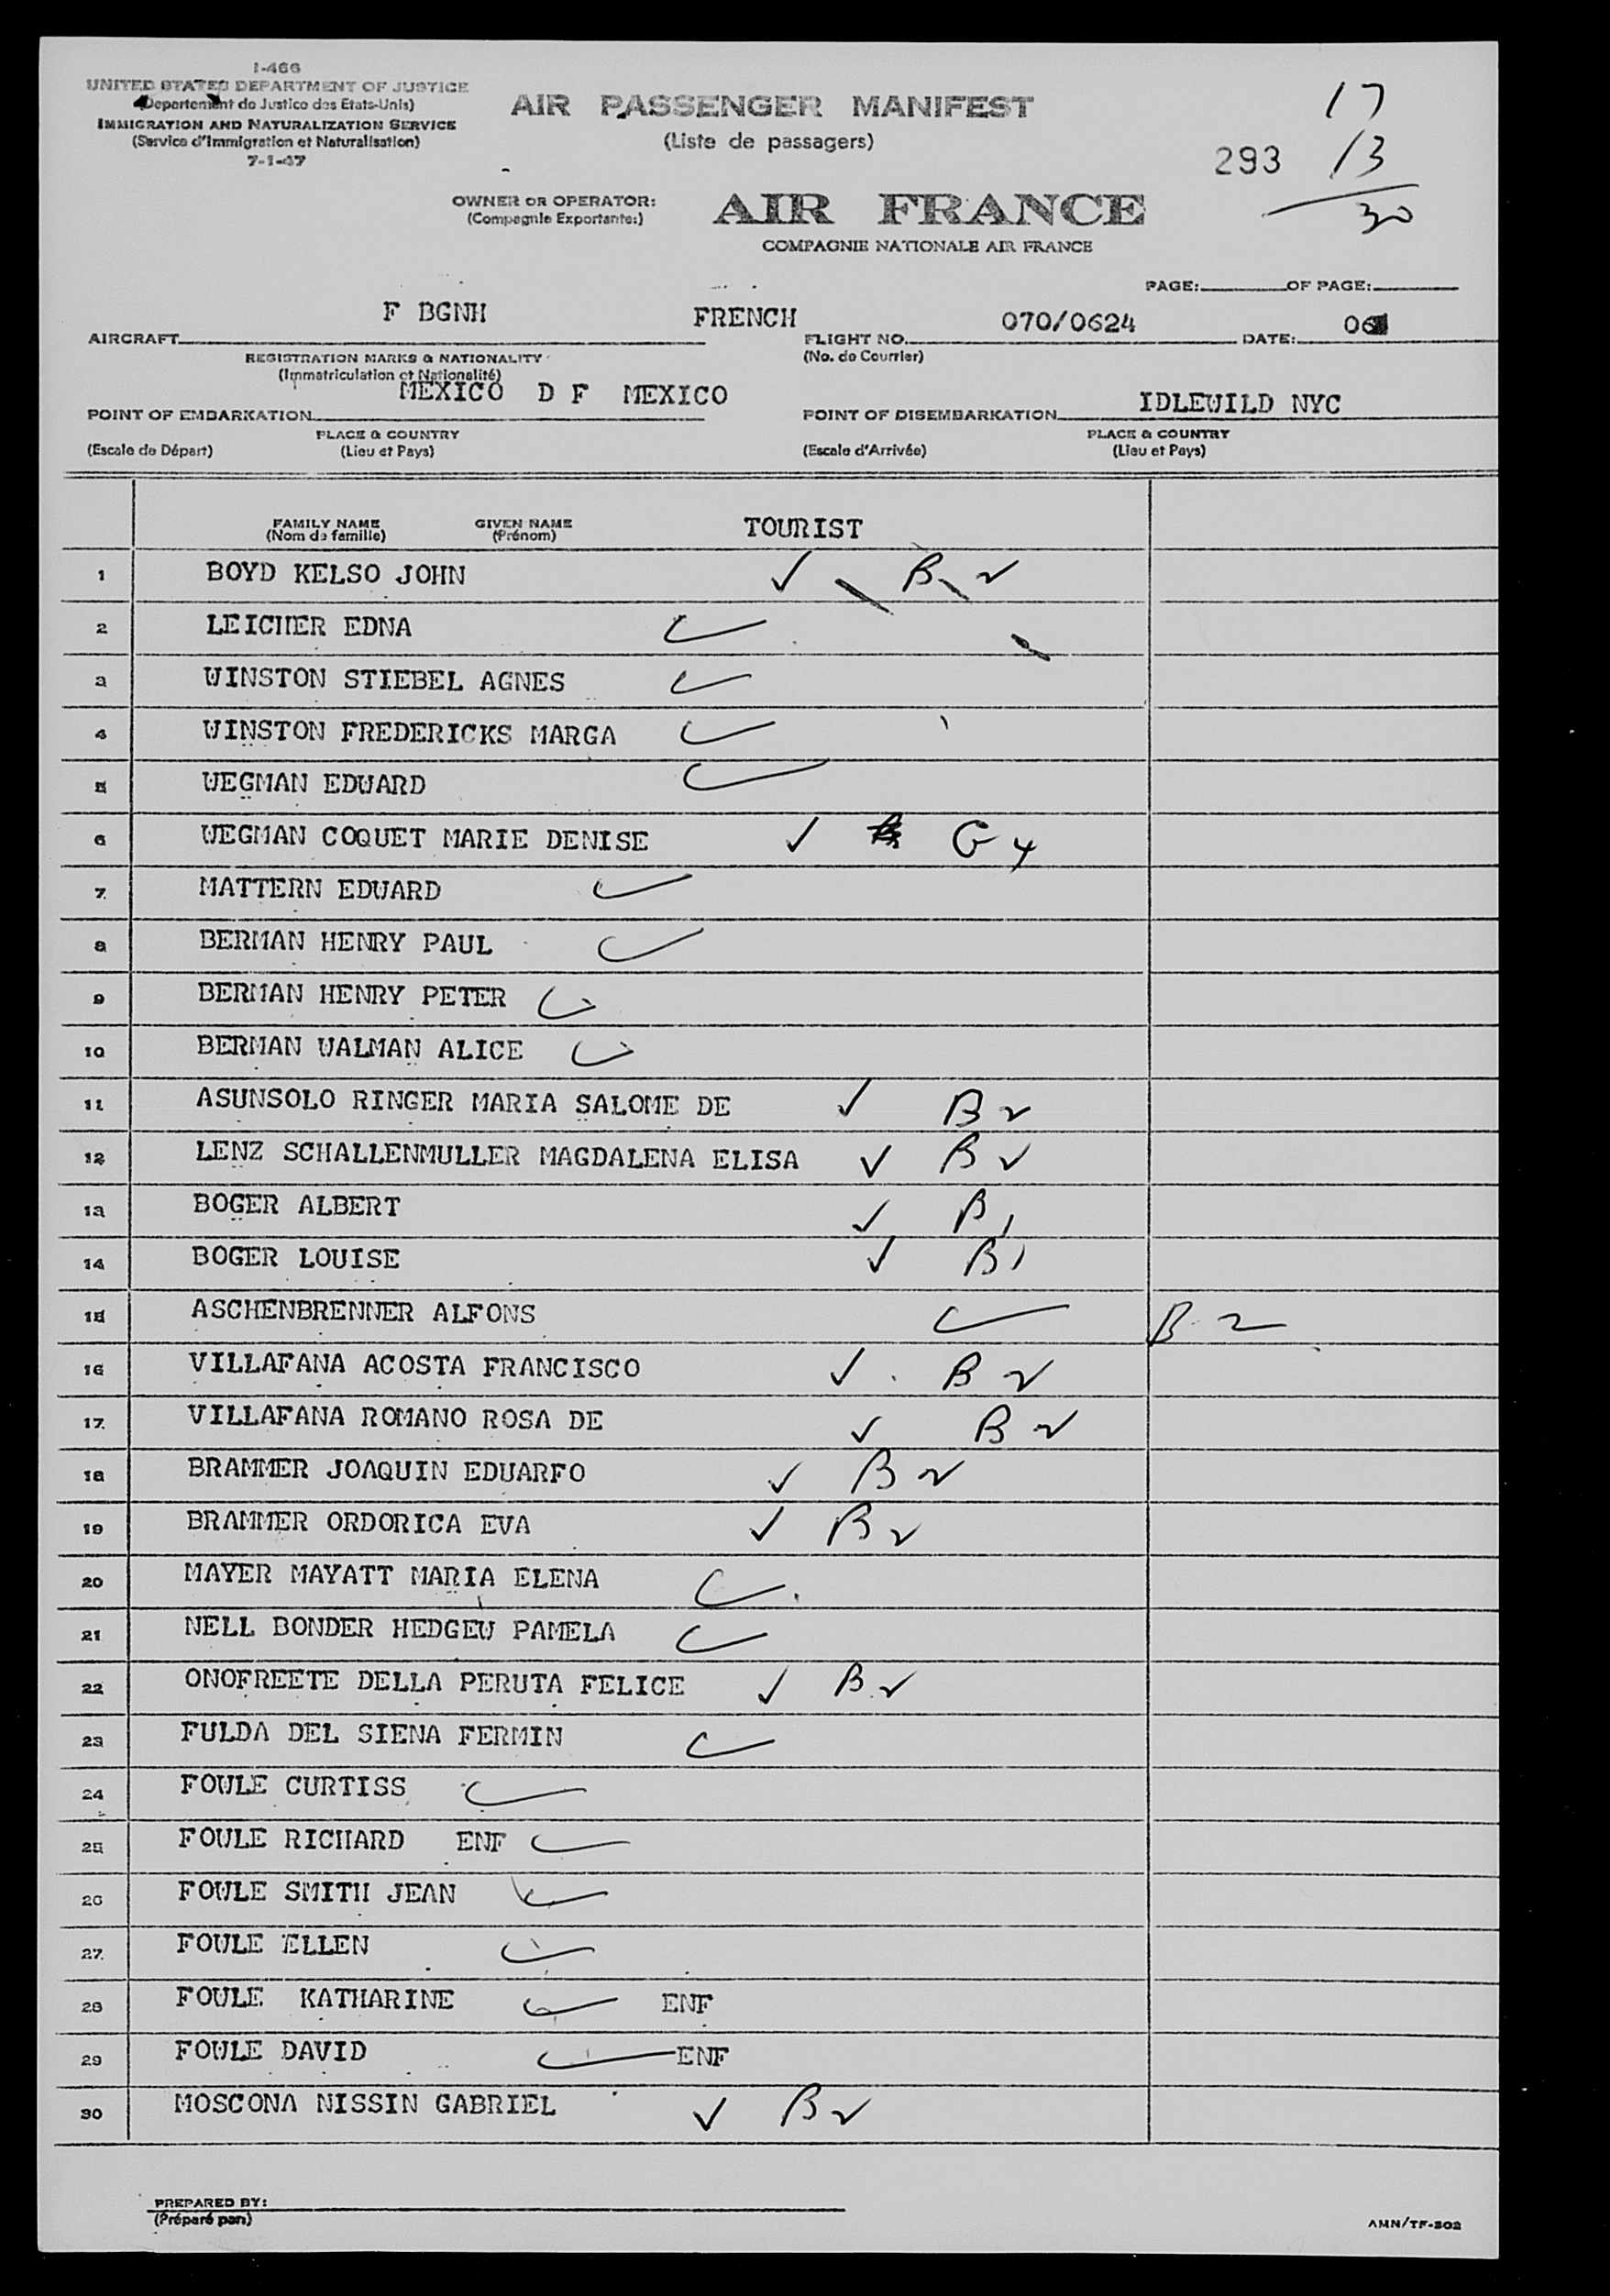 I-466
UNITED STATES DEPARTMENT OF JUSTICE
(Departement de Justice des Etats-Unis)
IMMIGRATION AND NATURALIZATION SERVICE
(Service d'Immigration et Naturalisation)
7-1-47
AIR PASSENGER MANIFEST
(Liste de passagers)
17
293 13
30
OWNER OR OPERATOR:
(Compagnie Exportante:)
AIR FRANCE
COMPAGNIE NATIONALE AIR FRANCE
PAGE: OF PAGE:
F BGNH FRENCH 070/0624 06
AIRCRAFT FLIGHT NO. DATE:
REGISTRATION MARKS & NATIONALITY (No. de Courrier)
(Immatriculation et Nationalité)
MEXICO D F MEXICO IDLEWILD NYC
POINT OF EMBARKATION POINT OF DISEMBARKATION
PLACE & COUNTRY PLACE & COUNTRY
(Escale de Départ) (Lieu et Pays) (Escale d'Arrivée) (Lieu et Pays)
FAMILY NAME GIVEN NAME TOURIST
(Nom de famille) (Prénom)
1 BOYD KELSO JOHN ✓ B 2
2 LEICHER EDNA ✓
3 WINSTON STIEBEL AGNES ✓
4 WINSTON FREDERICKS MARGA ✓
5 WEGMAN EDWARD ✓
6 WEGMAN COQUET MARIE DENISE ✓ G 4
7 MATTERN EDWARD ✓
8 BERMAN HENRY PAUL ✓
9 BERMAN HENRY PETER ✓
10 BERMAN WALMAN ALICE ✓
11 ASUNSOLO RINGER MARIA SALOME DE ✓ B 2
12 LENZ SCHALLENMULLER MAGDALENA ELISA ✓ B 2
13 BOGER ALBERT ✓ B 1
14 BOGER LOUISE ✓ B 1
15 ASCHENBRENNER ALFONS ✓ B 2
16 VILLAFANA ACOSTA FRANCISCO ✓ B 2
17 VILLAFANA ROMANO ROSA DE ✓ B 2
18 BRAMMER JOAQUIN EDUARFO ✓ B 2
19 BRAMMER ORDORICA EVA ✓ B 2
20 MAYER MAYATT MARIA ELENA ✓
21 NELL BONDER HEDGEW PAMELA ✓
22 ONOFREETE DELLA PERUTA FELICE ✓ B 2
23 FULDA DEL SIENA FERMIN ✓
24 FOWLE CURTISS ✓
25 FOWLE RICHARD ENF ✓
26 FOWLE SMITH JEAN ✓
27 FOWLE ELLEN ✓
28 FOWLE KATHARINE ✓ ENF
29 FOWLE DAVID ✓ ENF
30 MOSCONA NISSIN GABRIEL ✓ B 2
PREPARED BY:
(Préparé par)
AMN/TF-302